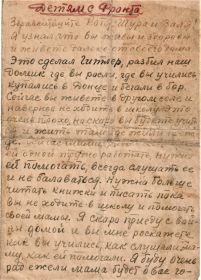 Детям с Фронта
Здравствуйте Коля, Шура и Валя
Я узнал что вы живы и здоровы
и живете далеко от своего дома
Это сделал Гитлер, разбил наш
домик где вы росли, где вы учились
купались в Донце и бегали в бор.
Сейчас вы живете в другом селе и
наверное не ходите в школу. Это
очень плохо,
и жить
ей одной трудно работать, нужно
ей помогать, всегда слушать ее
и не баловаться. Нужно больше
читать книжки и писать пока
вы не ходите в школу и помогать
своей мамы. Я скоро приеду с вами
домой и вы мне расскажете,
как вы учились, как слушали ма-
му, как ей помогали. Я буду очень
рад ежели мама будет о вас го-